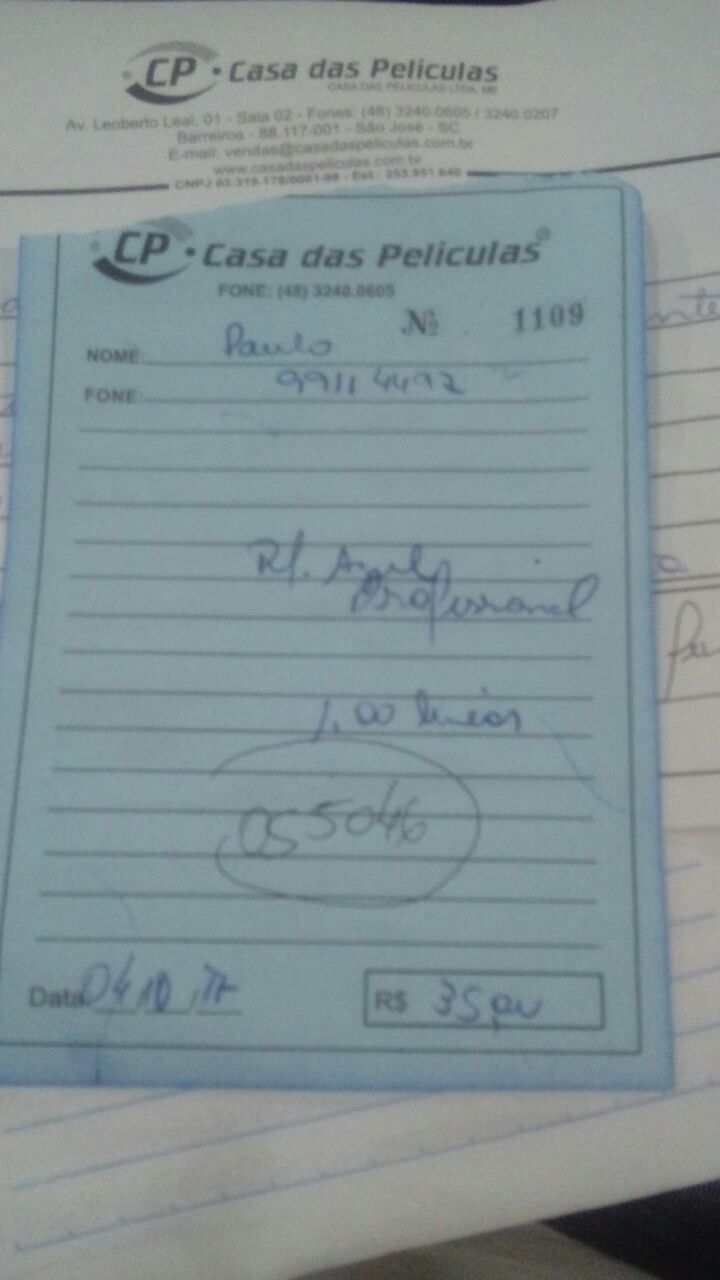 CP • Casa das Películas
CASA DAS PELÍCULAS LTDA. ME
Av. Leoberto Leal, 01 - Sala 02 - Fones: (48) 3240.0605 / 3240.0207
Barreiros - 88.117-001 - São José - SC
E-mail: vendas@casadaspeliculas.com.br
www.casadaspeliculas.com.br
CNPJ Est.: 253.951.640
CP • Casa das Películas®
FONE: (48) 3240.0605
Nº 1109
NOME: Paulo
FONE: 99114492
Rf. Azul
Profissional
1,00 linear
OS 5046
Data 04/10/17
R$ 35,00